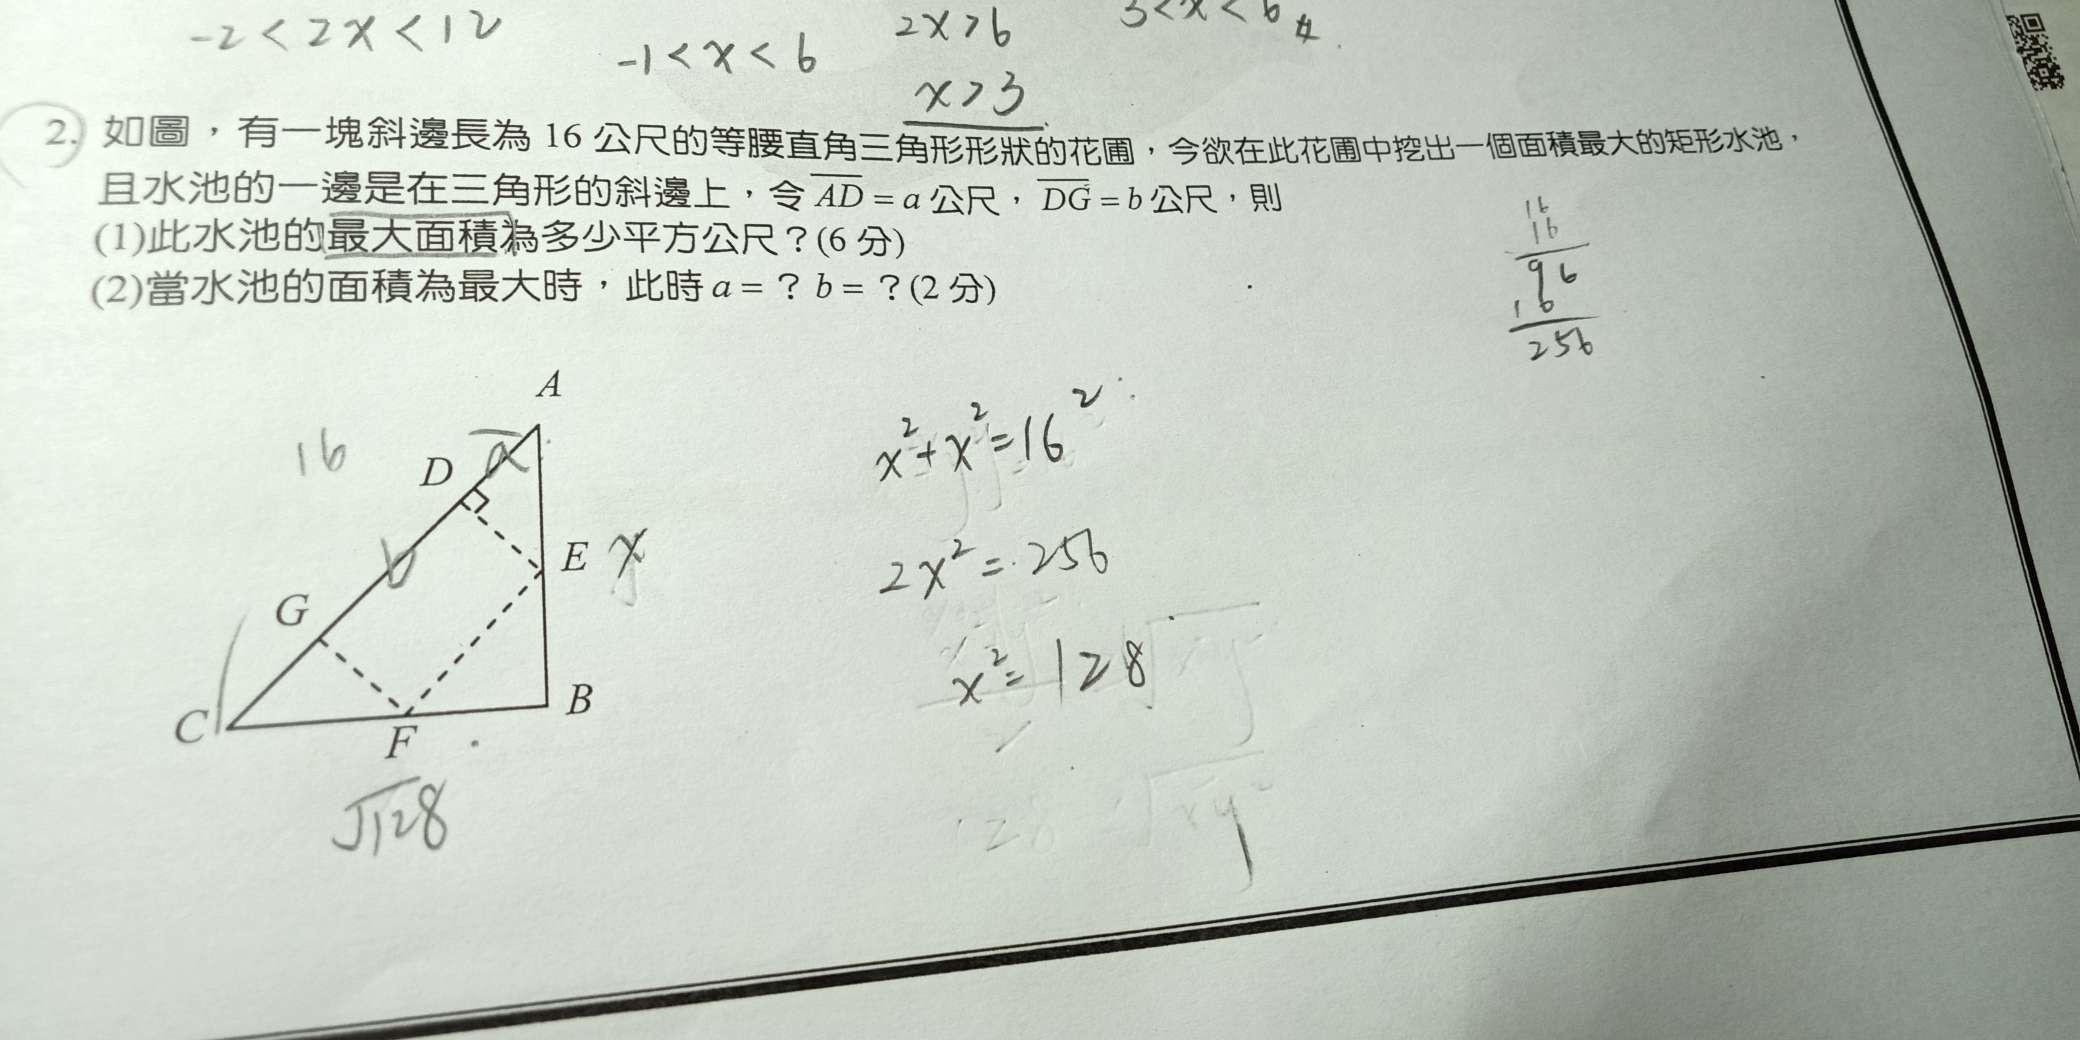 -2 < 2x < 12
-1 < x < 6
2x > 6
x > 3
3 < x < 6
2. 如圖，有一塊斜邊長為 16 公尺的等腰直角三角形形狀的花圃，今欲在此花圃中挖出一個面積最大的矩形水池，
且水池的一邊是在三角形的斜邊上，令 AD = a 公尺，DG = b 公尺，則
(1)此水池的最大面積為多少平方公尺？(6 分)
(2)當水池的面積為最大時，此時 a = ？ b = ？(2 分)
16
16
96
16
256
A
16
D
a
E
x
b
G
C
F
B
√128
x²+x²=16²
2x²=256
x²=128